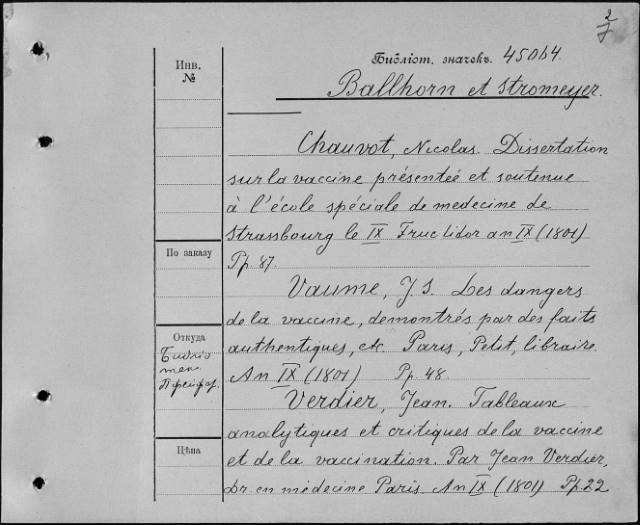 2
Библіот. значекъ. 45064.
Инв.
№
Ballhorn et Stromeyer.
Chauvot, Nicolas. Dissertation
sur la vaccine présentée et soutenue
à l'école spéciale de medecine de
Strassbourg le IX Fructidor an IX (1801)
Pp. 87.
По заказу
Vaume, J. S. Les dangers
de la vaccine, demontrés par des faits
authentiques, etc. Paris, Petit, libraire.
An IX (1801) Pp. 48.
Откуда
Библіо
тек.
Verdier, Jean. Tableaux
analytiques et critiques de la vaccine
et de la vaccination. Par Jean Verdier,
Цѣна
Dr. en médecine Paris. An IX (1801) Pp. 22